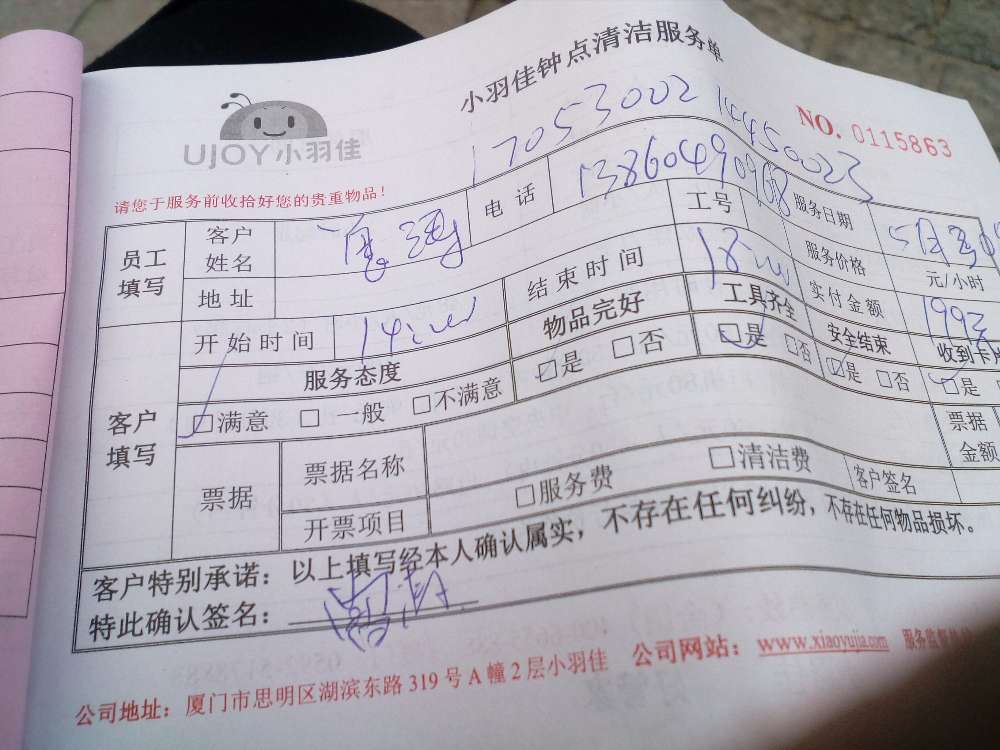 小羽佳钟点清洁服务单
UJOY小羽佳
17053002 14450023
NO. 0115863
请您于服务前收拾好您的贵重物品!
员工填写
客户姓名
电话
工号
服务日期
地址
服务价格
元/小时
开始时间
结束时间
实付金额
客户填写
服务态度
物品完好
工具齐全
安全结束
收到卡
□满意 □一般 □不满意
□是 □否
□是 □否
□是 □否
□是
票据
票据名称
票据金额
开票项目
□服务费 □清洁费
客户签名
客户特别承诺:以上填写经本人确认属实,不存在任何纠纷,不存在任何物品损坏。
特此确认签名:
公司地址:厦门市思明区湖滨东路 319 号 A 幢 2 层小羽佳 公司网站:www.xiaoyujia.com 服务监督